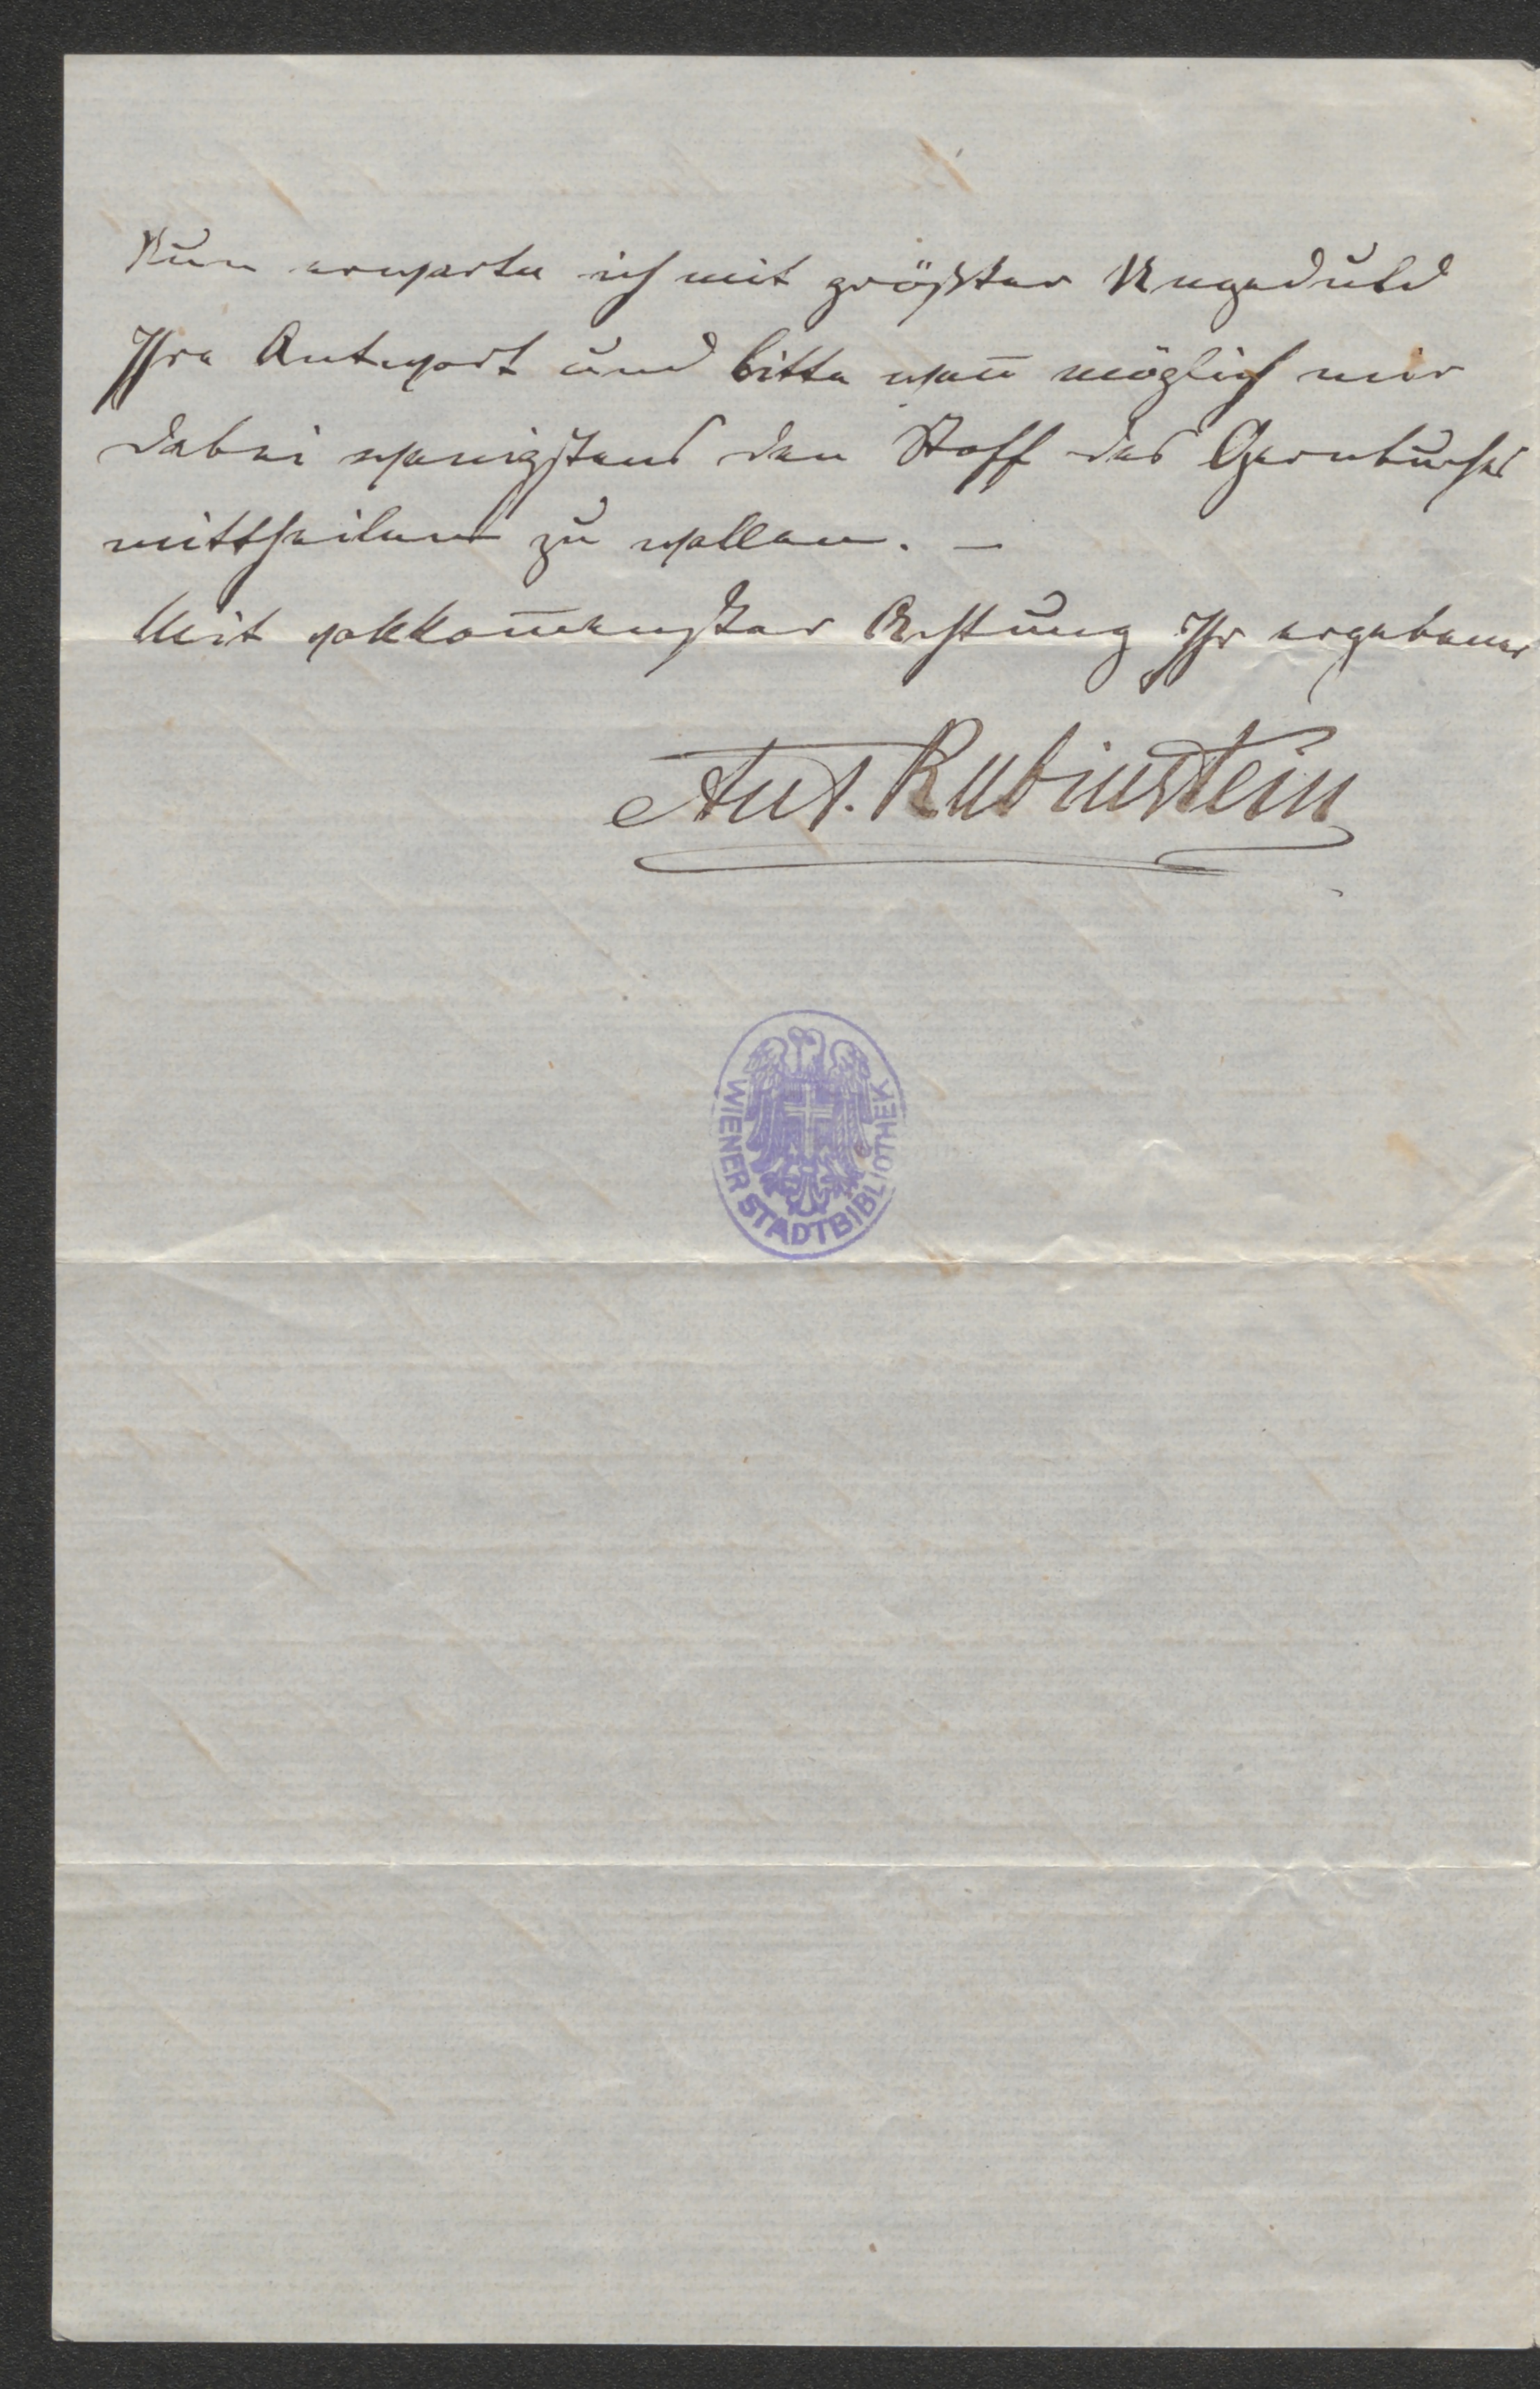 Nun erwarte ich mit größter Ungeduld
Ihre Antwort und bitte wen̄ möglich mir
dabei wenigstens den Stoff des Opernbuches
mittheilen zu wollen. –
Mit vollkom̄enster Achtung Ihr ergebener
Ant. Rubinstein
WIENER STADTBIBLIOTHEK